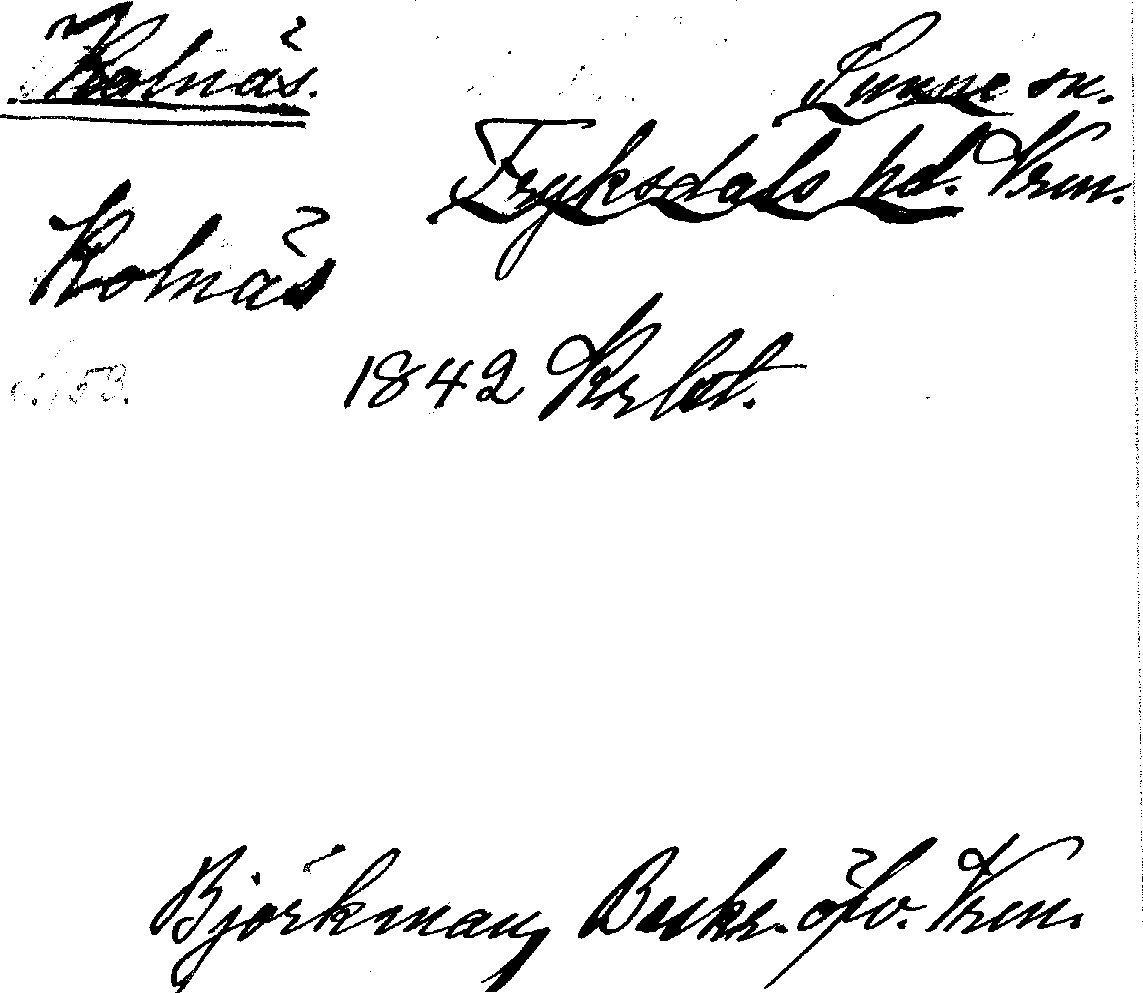 Kolnäs. Sunne sn.
Fryksdals hd. Vrm.
Kolnäs
1842
Björkman, Beskr. öfv. Vrm.